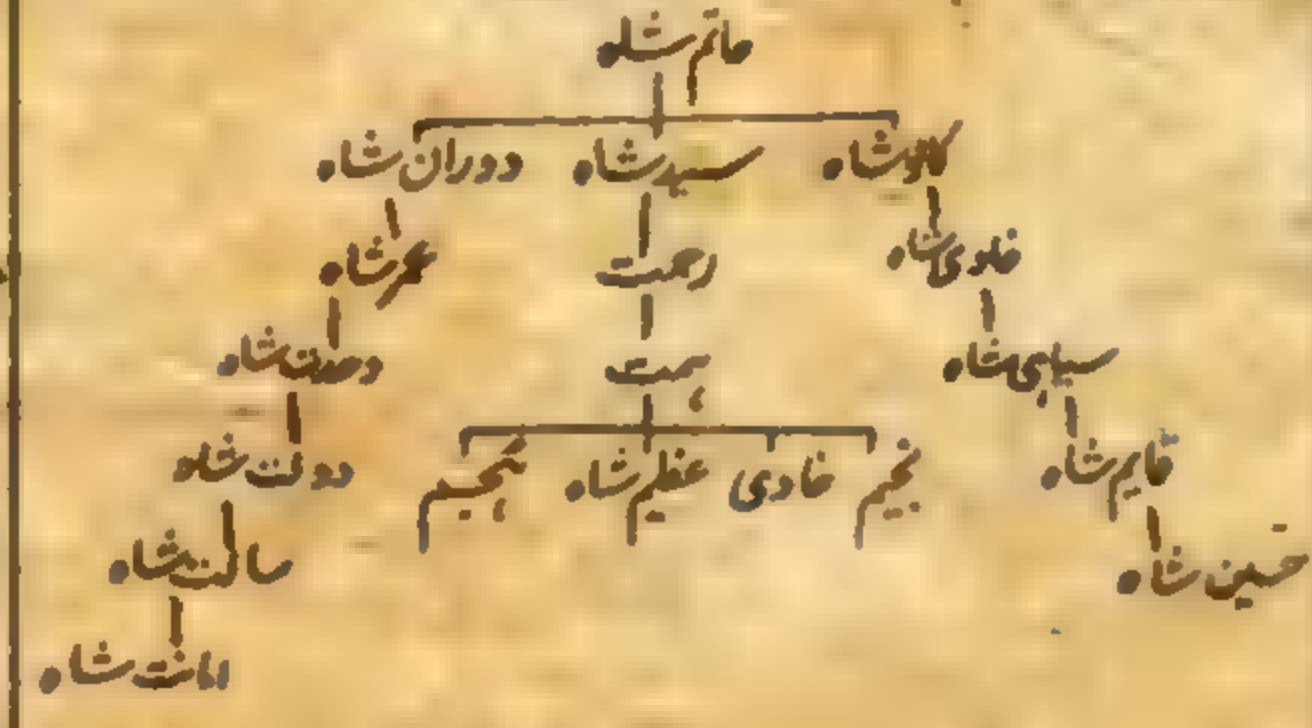 حاتم شاہ
کالو شاہ سید شاہ دوران شاہ
خادی شاہ رحمت عمر شاہ
سپاہی شاہ ہمت وحدت شاہ
قایم شاہ نجیم خادی عظیم شاہ دولت شاہ
حسین شاہ سالت شاہ
امانت شاہ